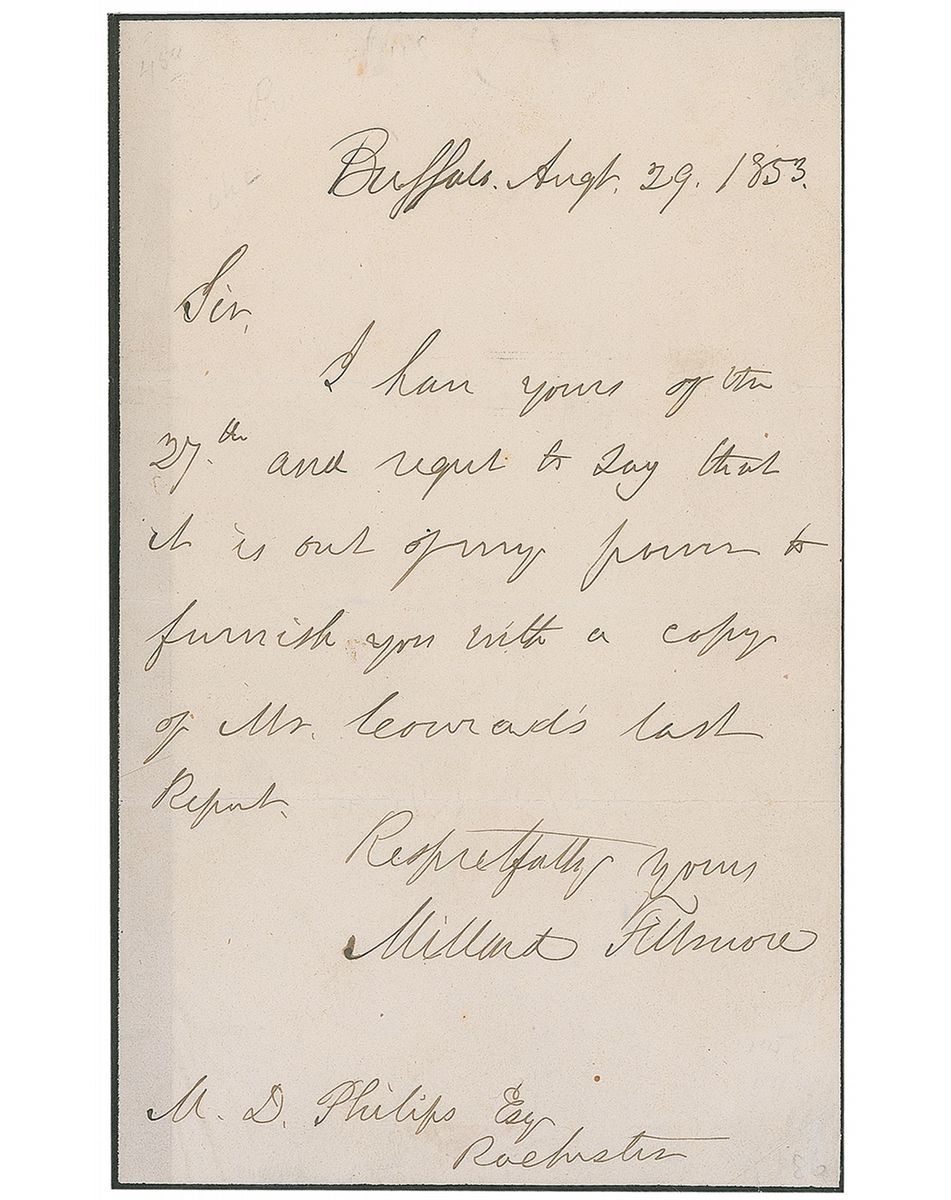 Buffalo. Augt. 29. 1853.
Sir,
I have yours of the
27.th and regret to say that
it is out of my power to
furnish you with a copy
of Mr. Conrad's last
Report.
Respectfully yours
Millard Fillmore
M. D. Philips Esq
Rochester